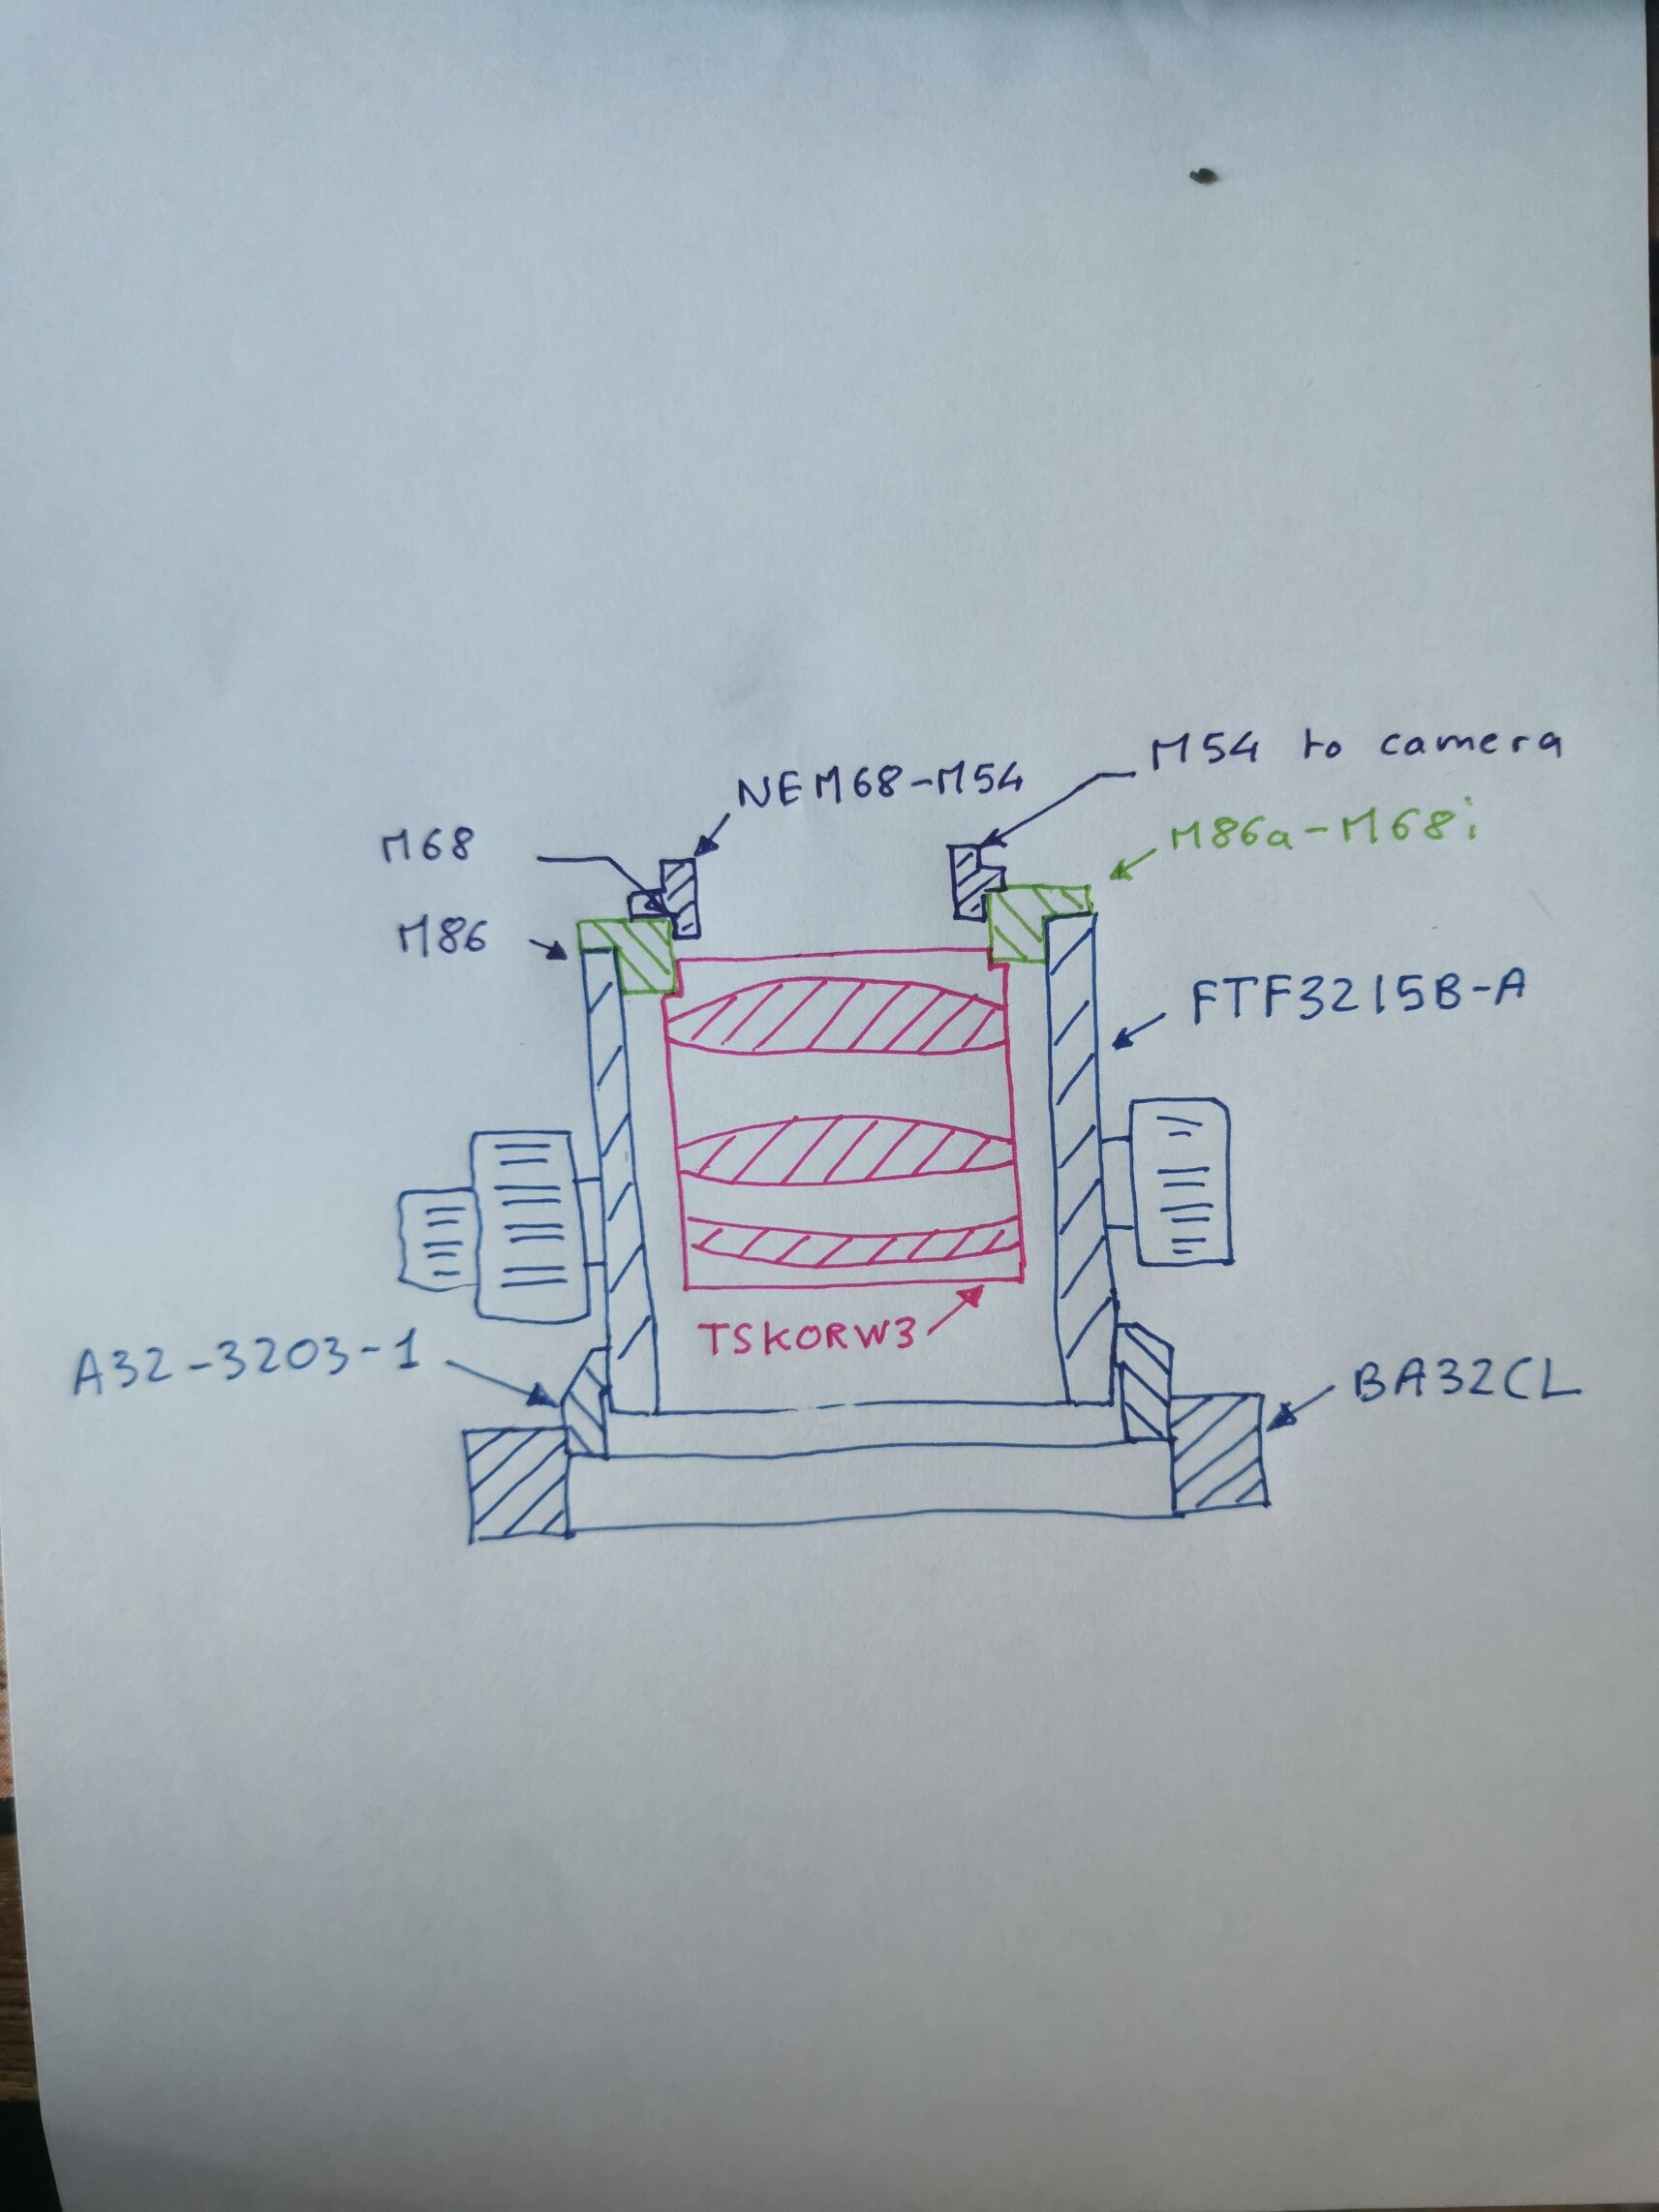 M54 to camera
NEM68-M54
M68
M86a-M68i
M86
FTF3215B-A
TSKORW3
A32-3203-1
BA32CL